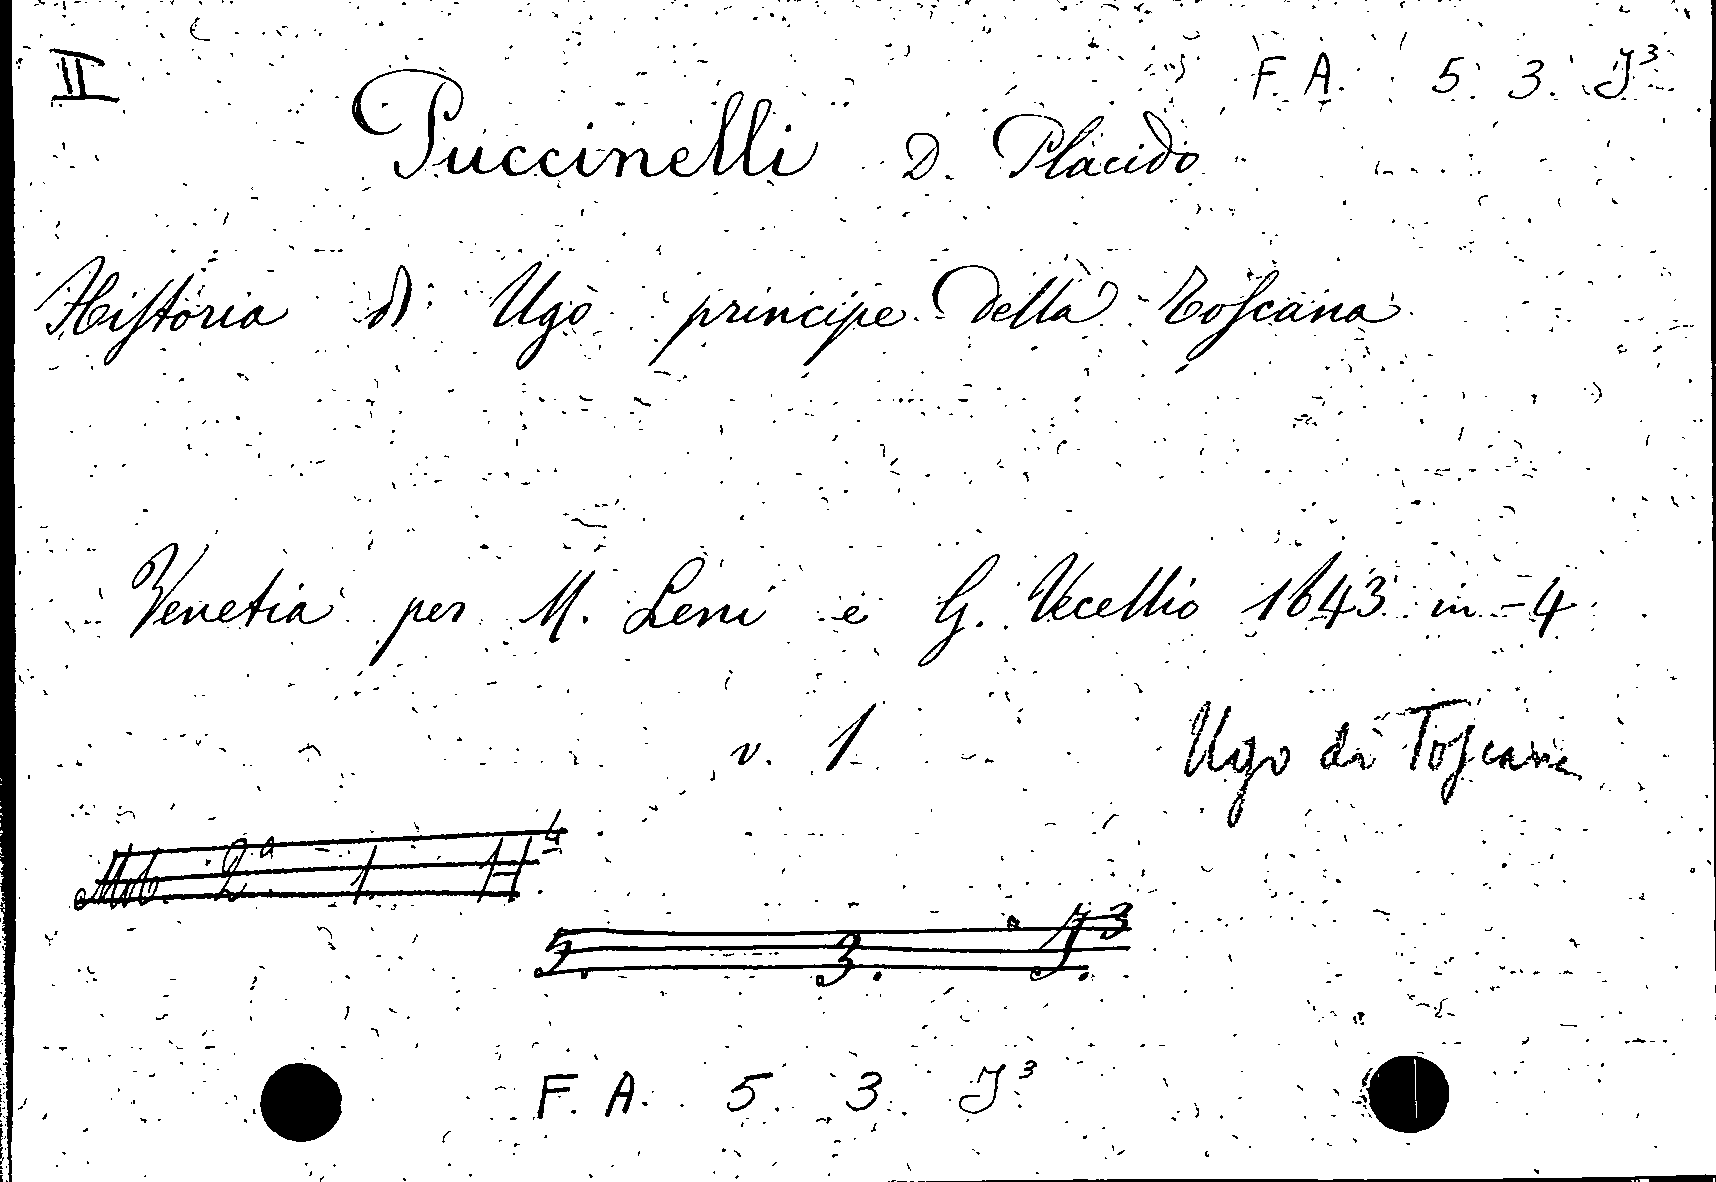 II F. A. 5. 3. J³
Puccinelli D. Placido
Historia di Ugo principe della Toscana
Venetia per M. Leni e G. Vecellio 1643 in-4
v. 1 Ugo di Toscana
2ª 1. H⁴
5. 3. J³
F. A. 5. 3. J³